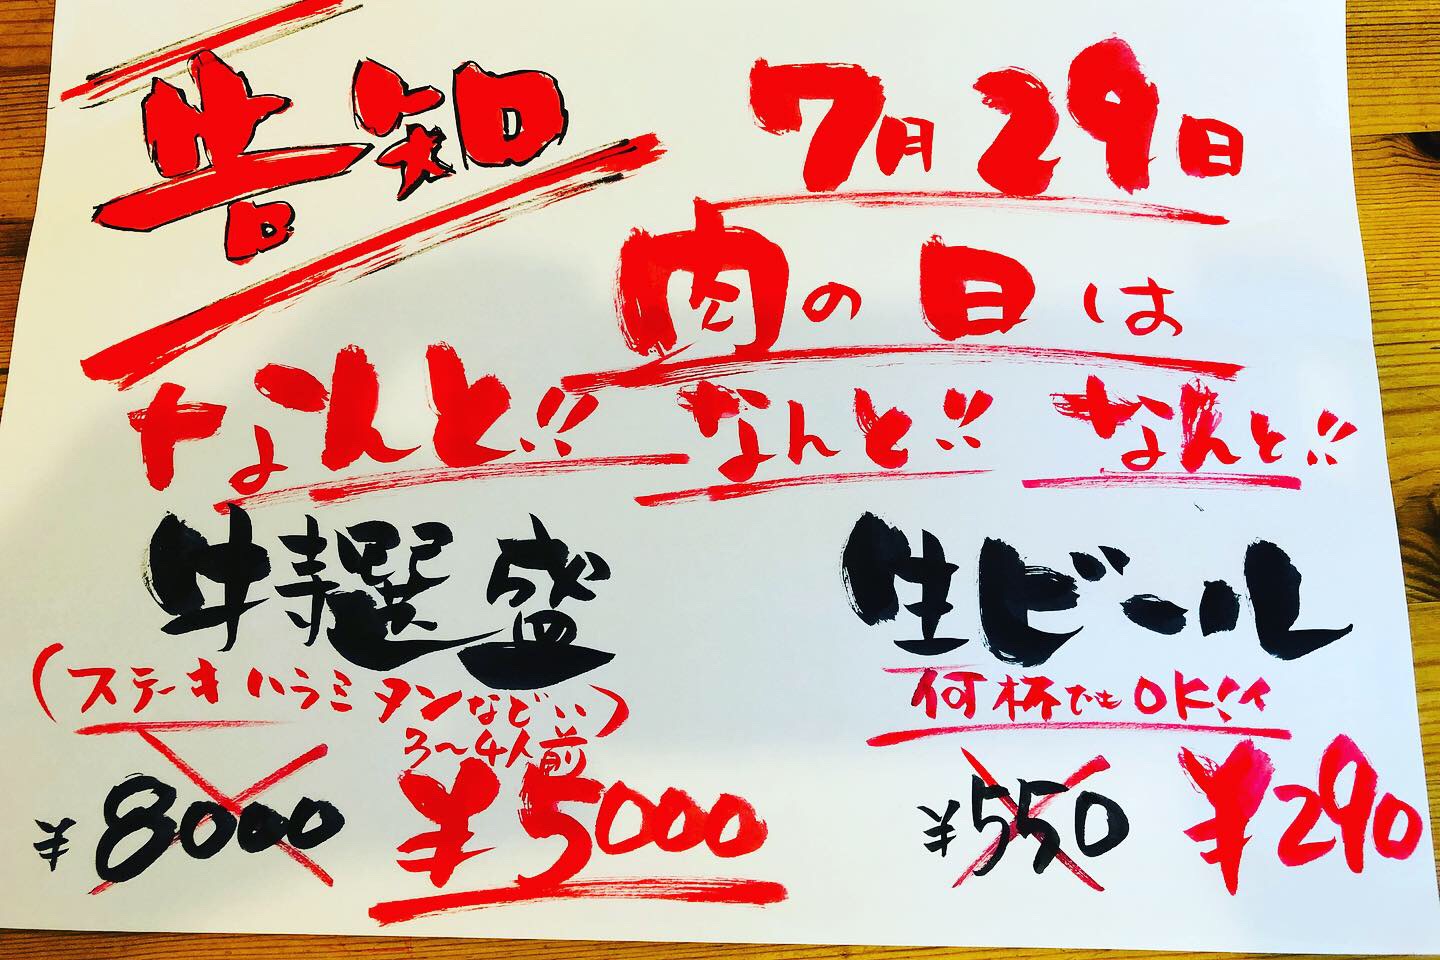 告知
7月29日
肉の日は
なんと!! なんと!! なんと!!
牛特選盛
(ステーキ ハラミ タンなど…)
3〜4人前
¥8000 ¥5000
生ビール
何杯でもOK!!
¥550 ¥290